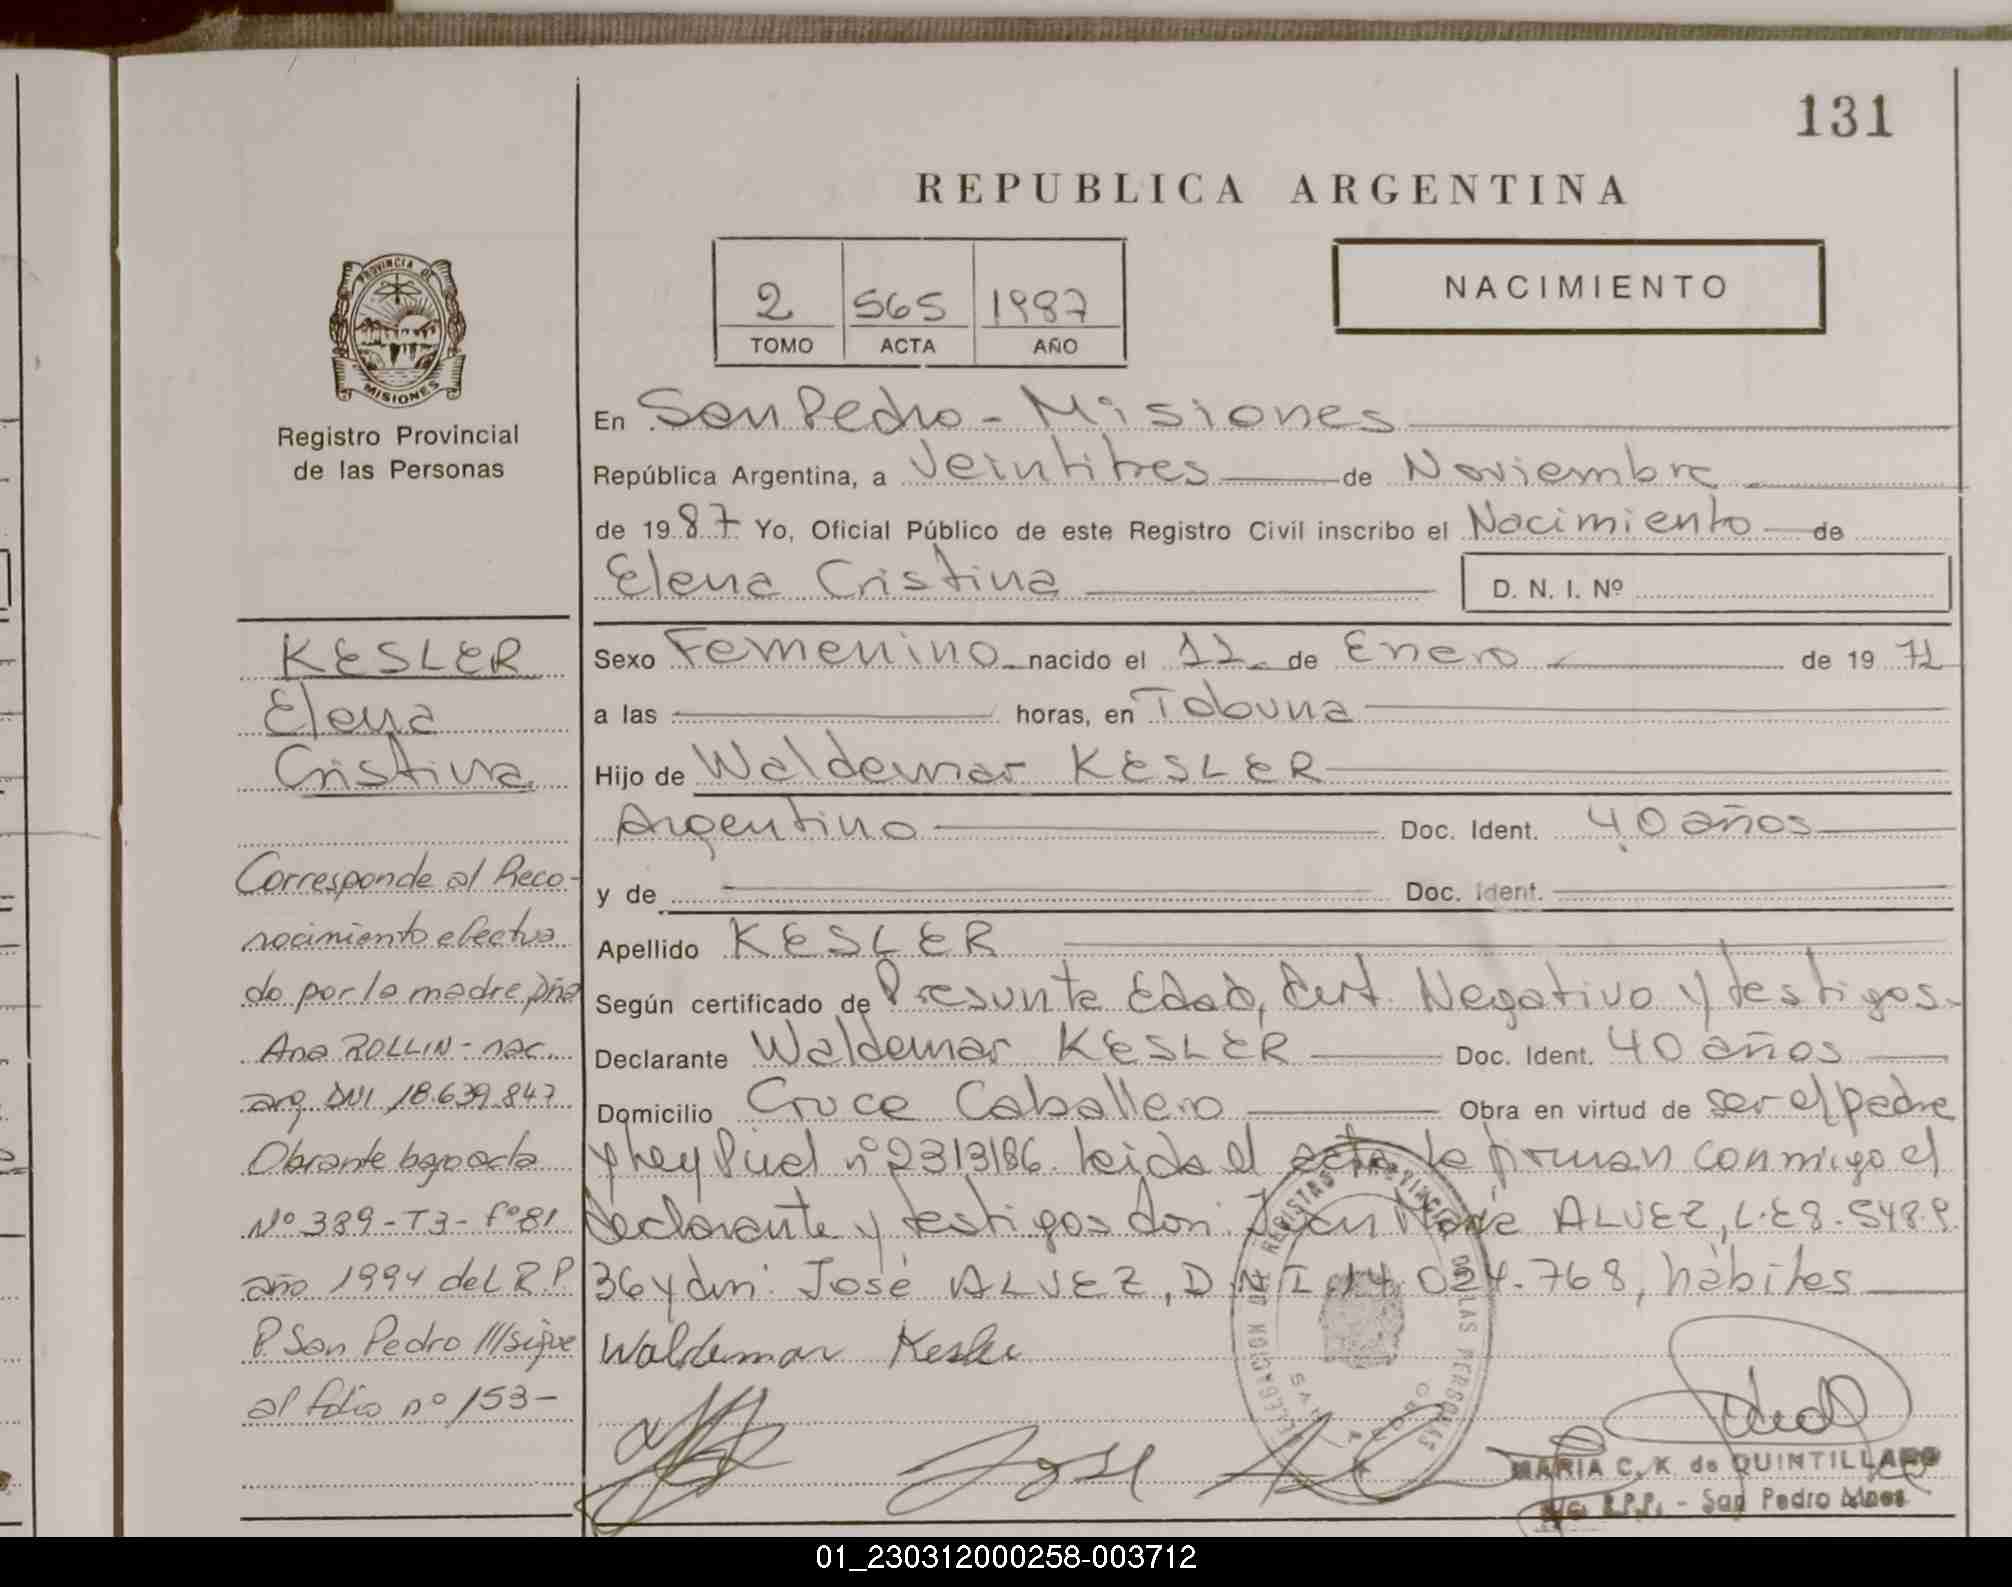 131
REPUBLICA ARGENTINA
2 565 1987
TOMO ACTA AÑO
NACIMIENTO
PROVINCIA DE
MISIONES
Registro Provincial
de las Personas
KESLER
Elena
Cristina
Corresponde al Reco-
nocimiento efectua
do por la madre Dña
Ana ROLLIN - nac.
arg. DNI 18.639.847
Obrante bajo acta
Nº 389-T3-Fº81
año 1994 del R.P.
P. San Pedro ///sigue
al folio nº 153-
En San Pedro - Misiones
República Argentina, a Veintitres de Noviembre
de 1987 Yo, Oficial Público de este Registro Civil inscribo el Nacimiento de
Elena Cristina D. N. I. Nº
Sexo Femenino nacido el 12 de Enero de 19 72
a las horas, en Tobuna
Hijo de Waldemar KESLER
Argentino Doc. Ident. 40 años
y de Doc. Ident.
Apellido KESLER
Según certificado de Presunta Edad, Cert. Negativo y testigos.
Declarante Waldemar KESLER Doc. Ident. 40 años
Domicilio Cruce Caballero Obra en virtud de ser el padre
y Ley Pcial nº 2313/86. Leida el acta la firman conmigo el
declarante y testigos don: Juan ALVEZ, L.E 8.548.9
36 y don: José ALVEZ, D.N.I. 14.024.768, hábiles
Waldemar Kesler
Jose
MARIA C. K. de QUINTILLANO
R.P.P. - San Pedro Mnes
01_230312000258-003712